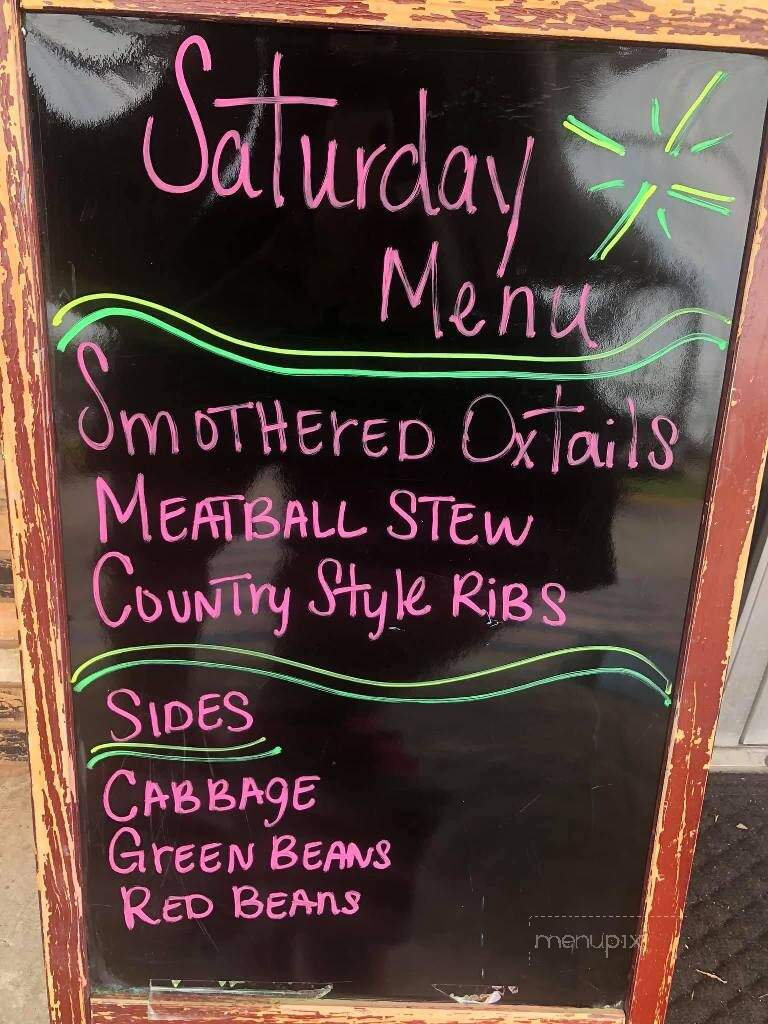 Saturday
Menu
SMOTHERED Oxtails
MEATBALL STEW
COUNTry Style RiBS
SIDES
CABBAgE
GrEEN BEANS
RED BEAnS
menupix